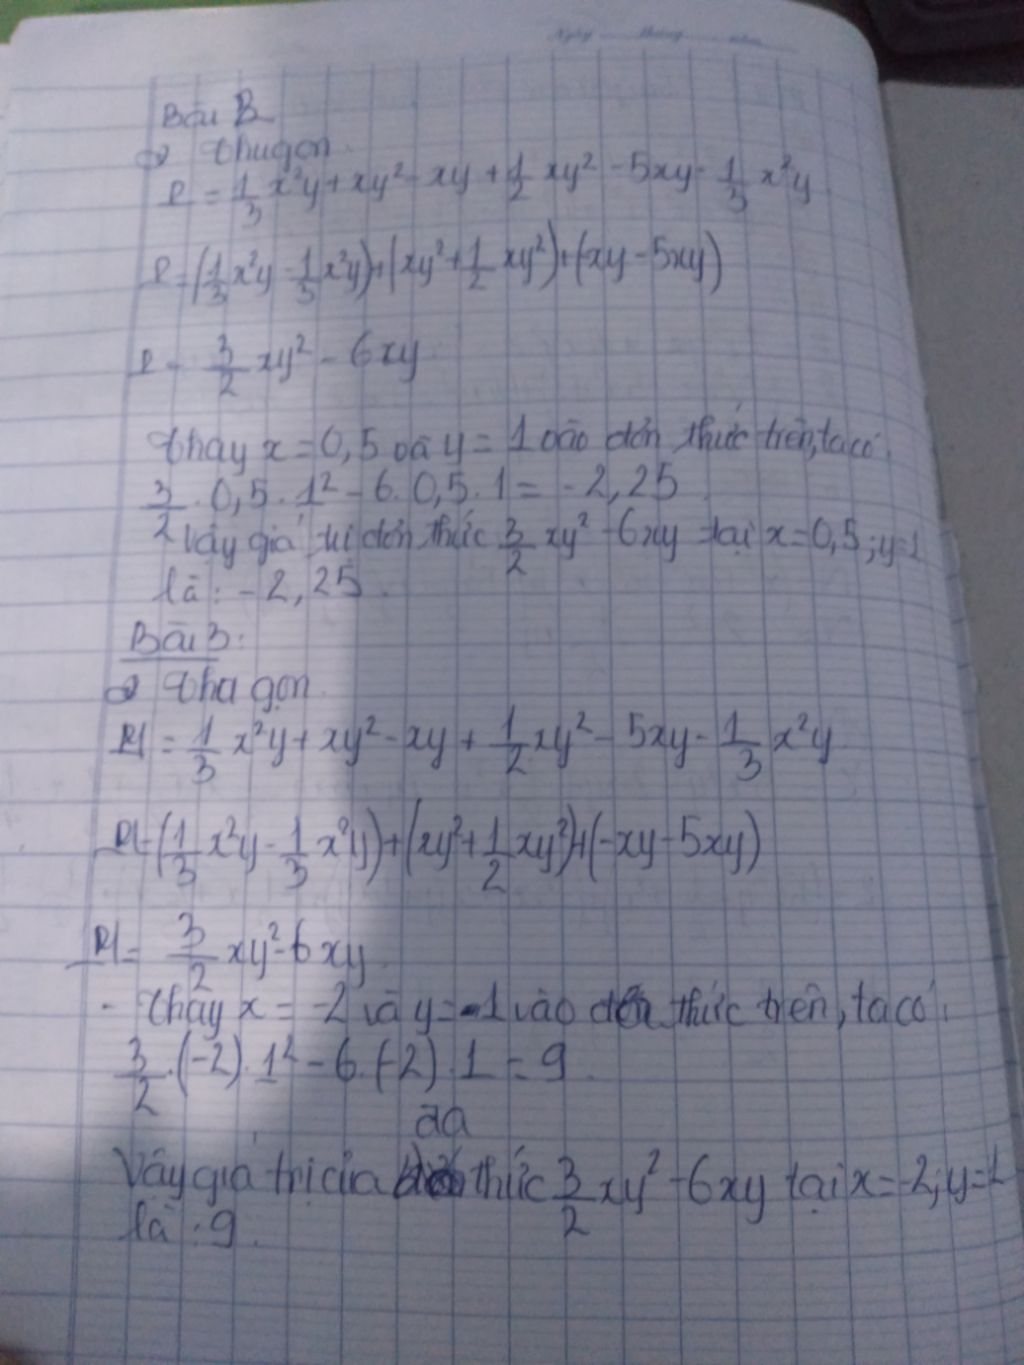 Ngày tháng năm
Bài B
a) Thu gọn
P = 1/3 x²y + xy² - xy + 1/2 xy² - 5xy - 1/3 x²y
P = (1/3 x²y - 1/3 x²y) + (xy² + 1/2 xy²) + (xy - 5xy)
P = 3/2 xy² - 6xy
Thay x = 0,5 và y = 1 vào đơn thức trên, ta có:
3/2 . 0,5 . 1² - 6. 0,5 . 1 = - 2,25
Vậy giá trị đơn thức 3/2 xy² - 6xy tại x = 0,5; y=1
là : - 2,25.
Bài 3:
a) Tha gọn
= 1/3 x²y + xy² - xy + 1/2 xy² - 5xy - 1/3 x²y
= (1/3 x²y - 1/3 x²y) + (xy² + 1/2 xy²) + (-xy - 5xy)
= 3/2 xy² - 6xy
- Thay x = -2 và y = 1 vào thức trên, ta có:
3/2 . (-2) . 1² - 6. (-2) . 1 = 9
đa
Vậy giá trị của thức 3/2 xy² - 6xy tại x = -2; y = 1
là : 9.